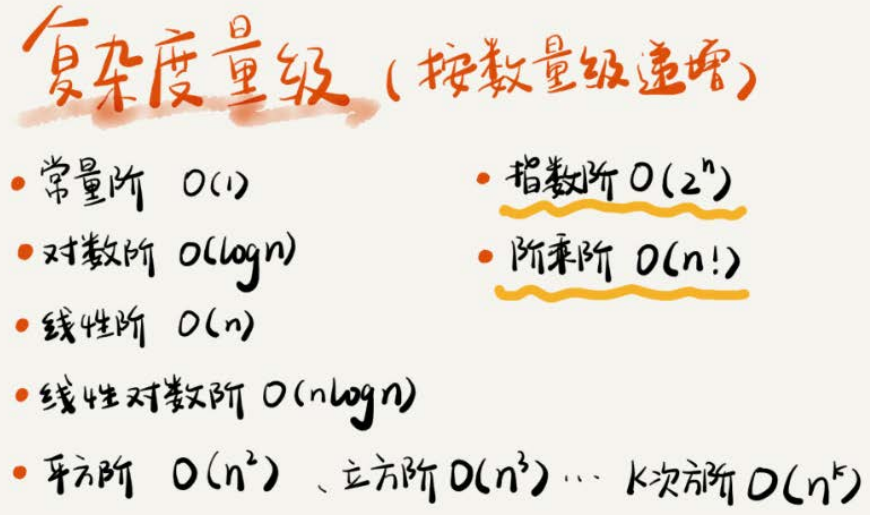 复杂度量级(按数量级递增)
• 常量阶 O(1)
• 对数阶 O(logn)
• 线性阶 O(n)
• 线性对数阶 O(nlogn)
• 平方阶 O(n²)、立方阶 O(n³)… K次方阶 O(nᵏ)
• 指数阶 O(2ⁿ)
• 阶乘阶 O(n!)